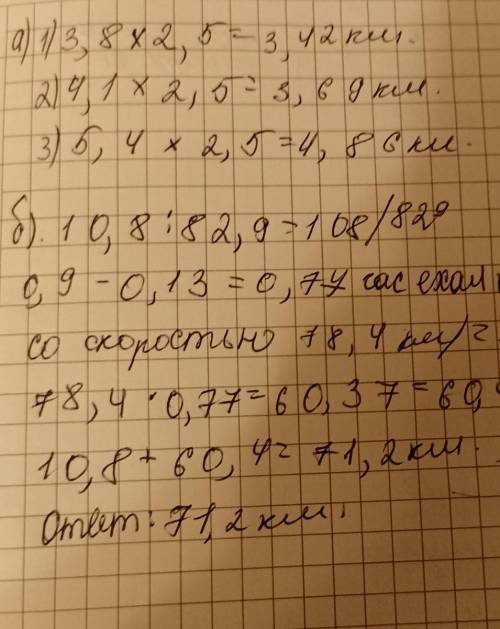 а) 1) 3,8 × 2,5 = 3,42 км.
2) 4,1 × 2,5 = 3,69 км.
3) 5,4 × 2,5 = 4,86 км.
б). 10,8 : 82,9 = 108/829
0,9 - 0,13 = 0,77 час ехал
со скоростью 78,4 км/г
78,4 · 0,77 = 60,37 = 60,
10,8 + 60,4 = 71,2 км.
Ответ: 71,2 км.